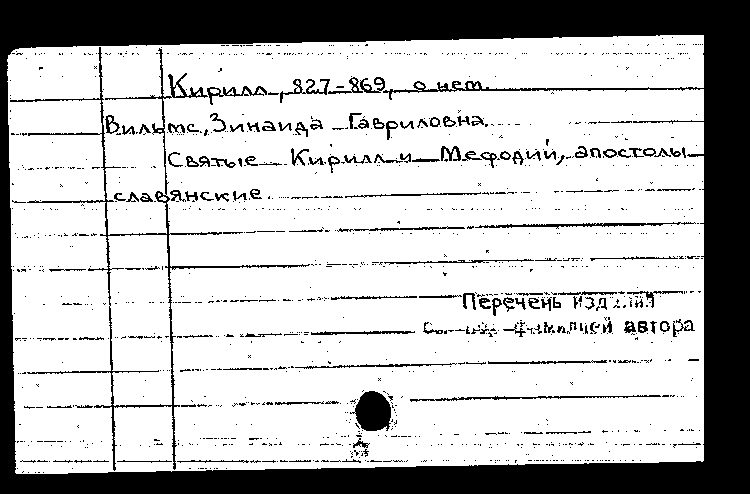 Кирилл, 827-869, о нем.
Вильмс, Зинаида Гавриловна.
Святые Кирилл и Мефодий, апостолы
славянские.
Перечень изданий
фамилией автора